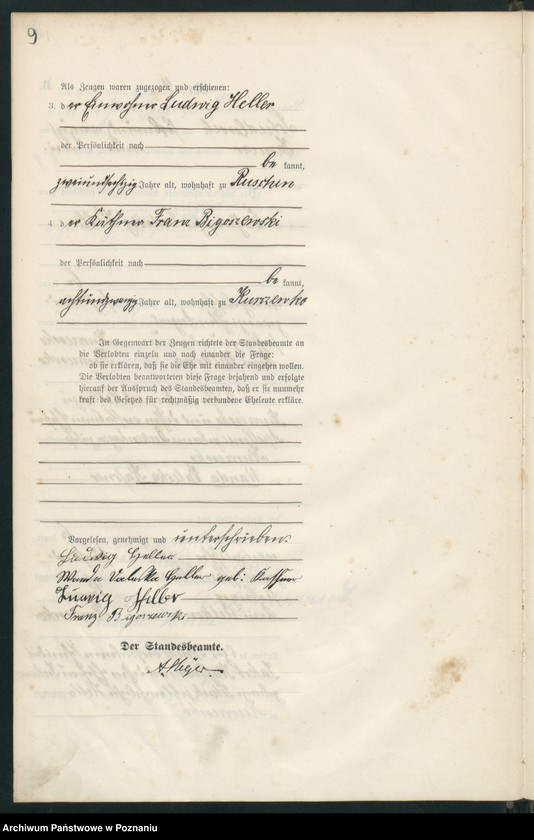 9
Als Zeugen waren zugezogen und erschienen:
3. der Einwohner Ludwig Heller
der Persönlichkeit nach
bekannt,
zweiundsechzig Jahre alt, wohnhaft zu Ruschen
4. der Käthner Franz Bigoszewski
der Persönlichkeit nach
bekannt,
achtundzwanzig Jahre alt, wohnhaft zu Kunzewko
In Gegenwart der Zeugen richtete der Standesbeamte an
die Verlobten einzeln und nach einander die Frage:
ob sie erklären, daß sie die Ehe mit einander eingehen wollen.
Die Verlobten beantworteten diese Frage bejahend und erfolgte
hierauf der Ausspruch des Standesbeamten, daß er sie nunmehr
kraft des Gesetzes für rechtmäßig verbundene Eheleute erkläre.
Vorgelesen, genehmigt und unterschrieben.
Ludwig Heller
Wanda Valeska Heller geb:
Ludwig Heller
Franz Bigoszewski
Der Standesbeamte.
Archiwum Państwowe w Poznaniu